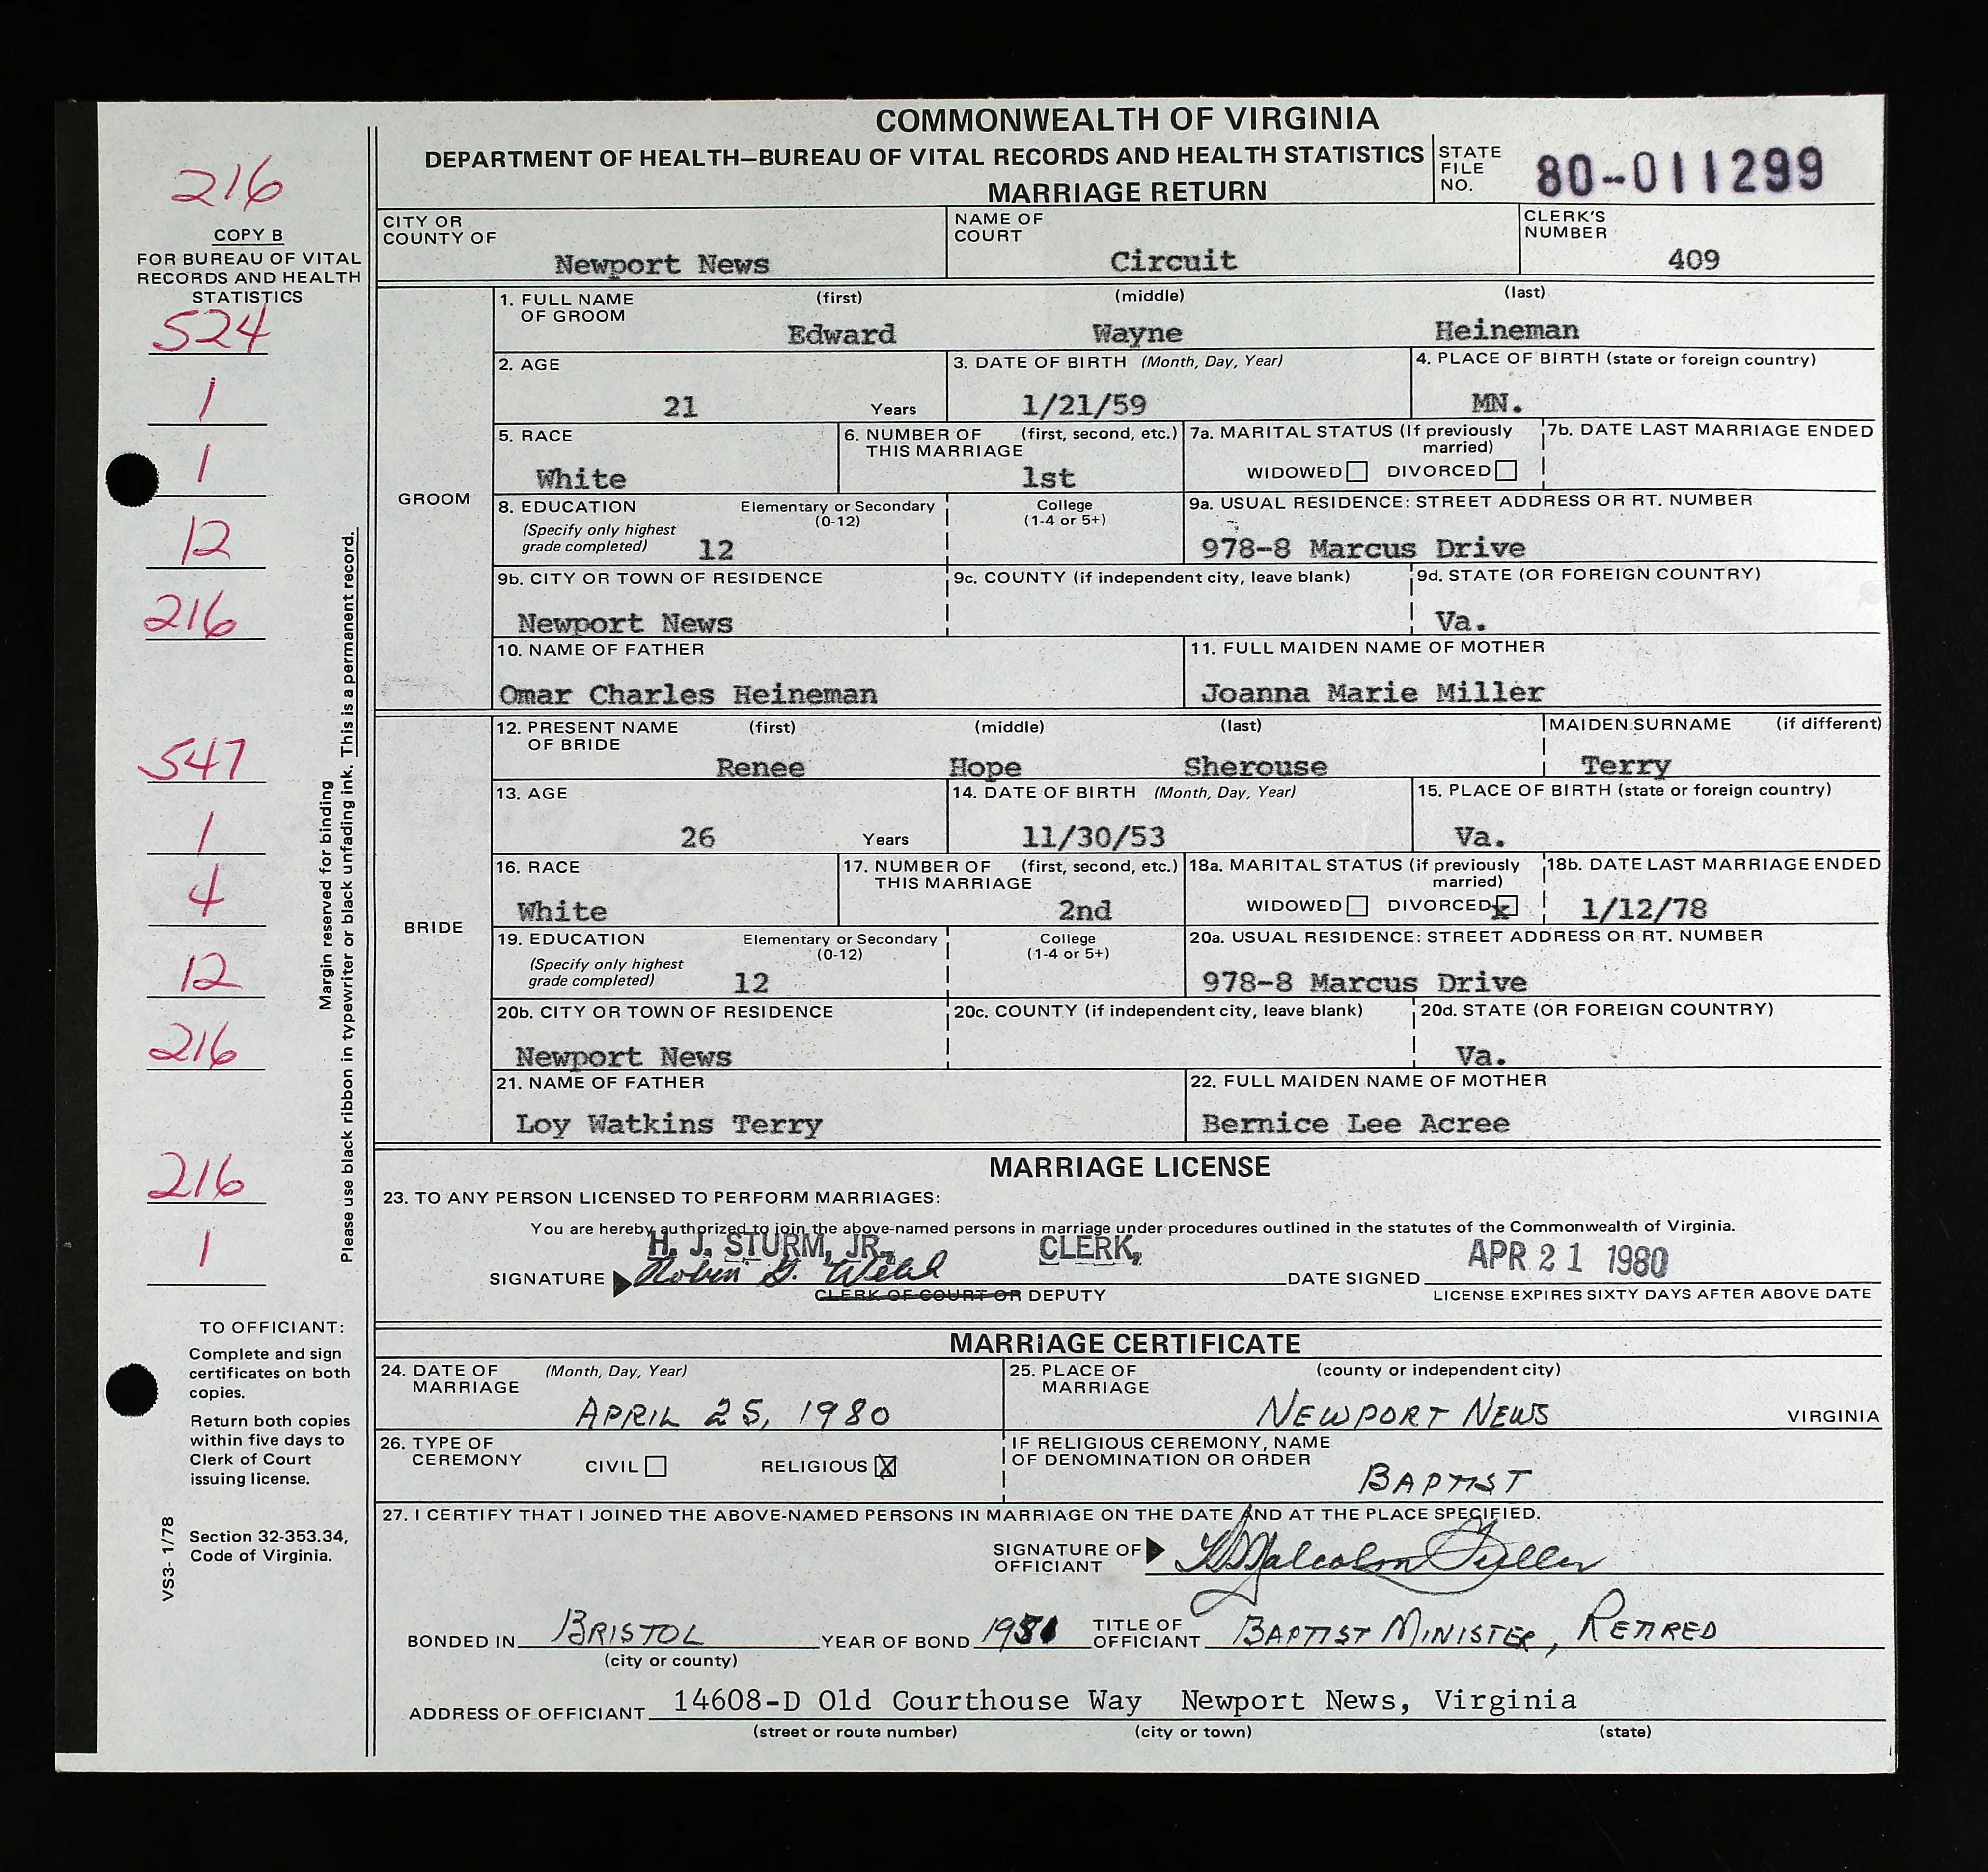 COMMONWEALTH OF VIRGINIA
DEPARTMENT OF HEALTH—BUREAU OF VITAL RECORDS AND HEALTH STATISTICS
MARRIAGE RETURN
STATE FILE NO. 80-011299
216
COPY B
FOR BUREAU OF VITAL
RECORDS AND HEALTH
STATISTICS
524
1
1
12
216
547
1
4
12
216
216
1
Margin reserved for binding
Please use black ribbon in typewriter or black unfading ink. This is a permanent record.
TO OFFICIANT:
Complete and sign
certificates on both
copies.
Return both copies
within five days to
Clerk of Court
issuing license.
Section 32-353.34,
Code of Virginia.
VS3- 1/78
CITY OR COUNTY OF Newport News
NAME OF COURT Circuit
CLERK'S NUMBER 409
GROOM
1. FULL NAME OF GROOM (first) (middle) (last)
Edward Wayne Heineman
2. AGE 21 Years
3. DATE OF BIRTH (Month, Day, Year) 1/21/59
4. PLACE OF BIRTH (state or foreign country) MN.
5. RACE White
6. NUMBER OF THIS MARRIAGE (first, second, etc.) 1st
7a. MARITAL STATUS (If previously married) WIDOWED DIVORCED
7b. DATE LAST MARRIAGE ENDED
8. EDUCATION (Specify only highest grade completed) Elementary or Secondary (0-12) 12 College (1-4 or 5+)
9a. USUAL RESIDENCE: STREET ADDRESS OR RT. NUMBER
978-8 Marcus Drive
9b. CITY OR TOWN OF RESIDENCE Newport News
9c. COUNTY (if independent city, leave blank)
9d. STATE (OR FOREIGN COUNTRY) Va.
10. NAME OF FATHER
Omar Charles Heineman
11. FULL MAIDEN NAME OF MOTHER
Joanna Marie Miller
BRIDE
12. PRESENT NAME OF BRIDE (first) (middle) (last) MAIDEN SURNAME (if different)
Renee Hope Sherouse Terry
13. AGE 26 Years
14. DATE OF BIRTH (Month, Day, Year) 11/30/53
15. PLACE OF BIRTH (state or foreign country) Va.
16. RACE White
17. NUMBER OF THIS MARRIAGE (first, second, etc.) 2nd
18a. MARITAL STATUS (if previously married) WIDOWED DIVORCED x
18b. DATE LAST MARRIAGE ENDED 1/12/78
19. EDUCATION (Specify only highest grade completed) Elementary or Secondary (0-12) 12 College (1-4 or 5+)
20a. USUAL RESIDENCE: STREET ADDRESS OR RT. NUMBER
978-8 Marcus Drive
20b. CITY OR TOWN OF RESIDENCE Newport News
20c. COUNTY (if independent city, leave blank)
20d. STATE (OR FOREIGN COUNTRY) Va.
21. NAME OF FATHER
Loy Watkins Terry
22. FULL MAIDEN NAME OF MOTHER
Bernice Lee Acree
MARRIAGE LICENSE
23. TO ANY PERSON LICENSED TO PERFORM MARRIAGES:
You are hereby authorized to join the above-named persons in marriage under procedures outlined in the statutes of the Commonwealth of Virginia.
H. J. STURM, JR., CLERK,
SIGNATURE Robin G. DATE SIGNED APR 21 1980
CLERK OF COURT OR DEPUTY
LICENSE EXPIRES SIXTY DAYS AFTER ABOVE DATE
MARRIAGE CERTIFICATE
24. DATE OF MARRIAGE (Month, Day, Year) APRIL 25, 1980
25. PLACE OF MARRIAGE (county or independent city) NEWPORT NEWS VIRGINIA
26. TYPE OF CEREMONY CIVIL RELIGIOUS X
IF RELIGIOUS CEREMONY, NAME OF DENOMINATION OR ORDER BAPTIST
27. I CERTIFY THAT I JOINED THE ABOVE-NAMED PERSONS IN MARRIAGE ON THE DATE AND AT THE PLACE SPECIFIED.
SIGNATURE OF OFFICIANT Malcolm Fuller
BONDED IN BRISTOL YEAR OF BOND TITLE OF OFFICIANT BAPTIST MINISTER, RETIRED
(city or county)
ADDRESS OF OFFICIANT 14608-D Old Courthouse Way Newport News, Virginia
(street or route number) (city or town) (state)